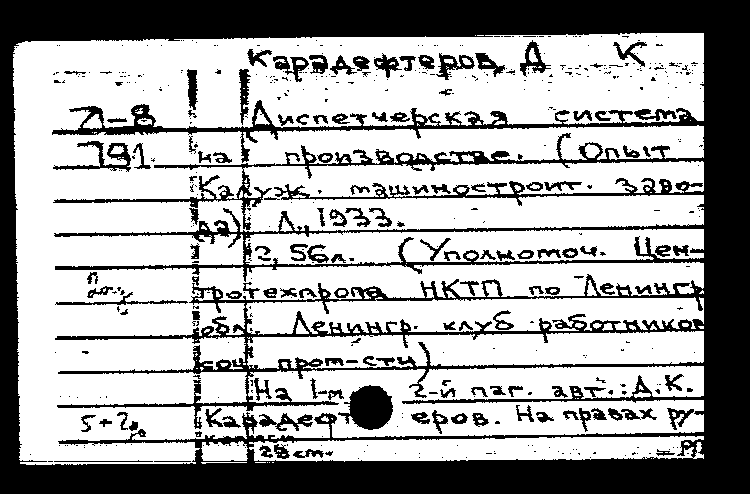 Карадефтеров, Д К
Л-8 Диспетчерская система
791. на производстве. (Опыт
Калуж. машиностроит. заво-
да) Л., 1933.
2, 56л. (Уполномоч. Цен-
тротехпропа НКТП по Ленингр
обл. Ленингр. клуб работников
соц. пром-сти)
На 1-м 2-й паг. авт.: Д.К.
5+2 Карадефт еров. На правах ру-
кописи
28 cm.